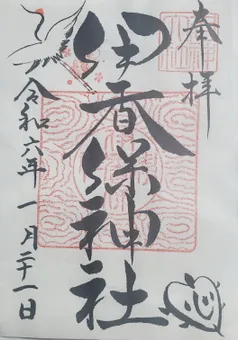 奉拝
伊香保神社
令和六年一月二十一日